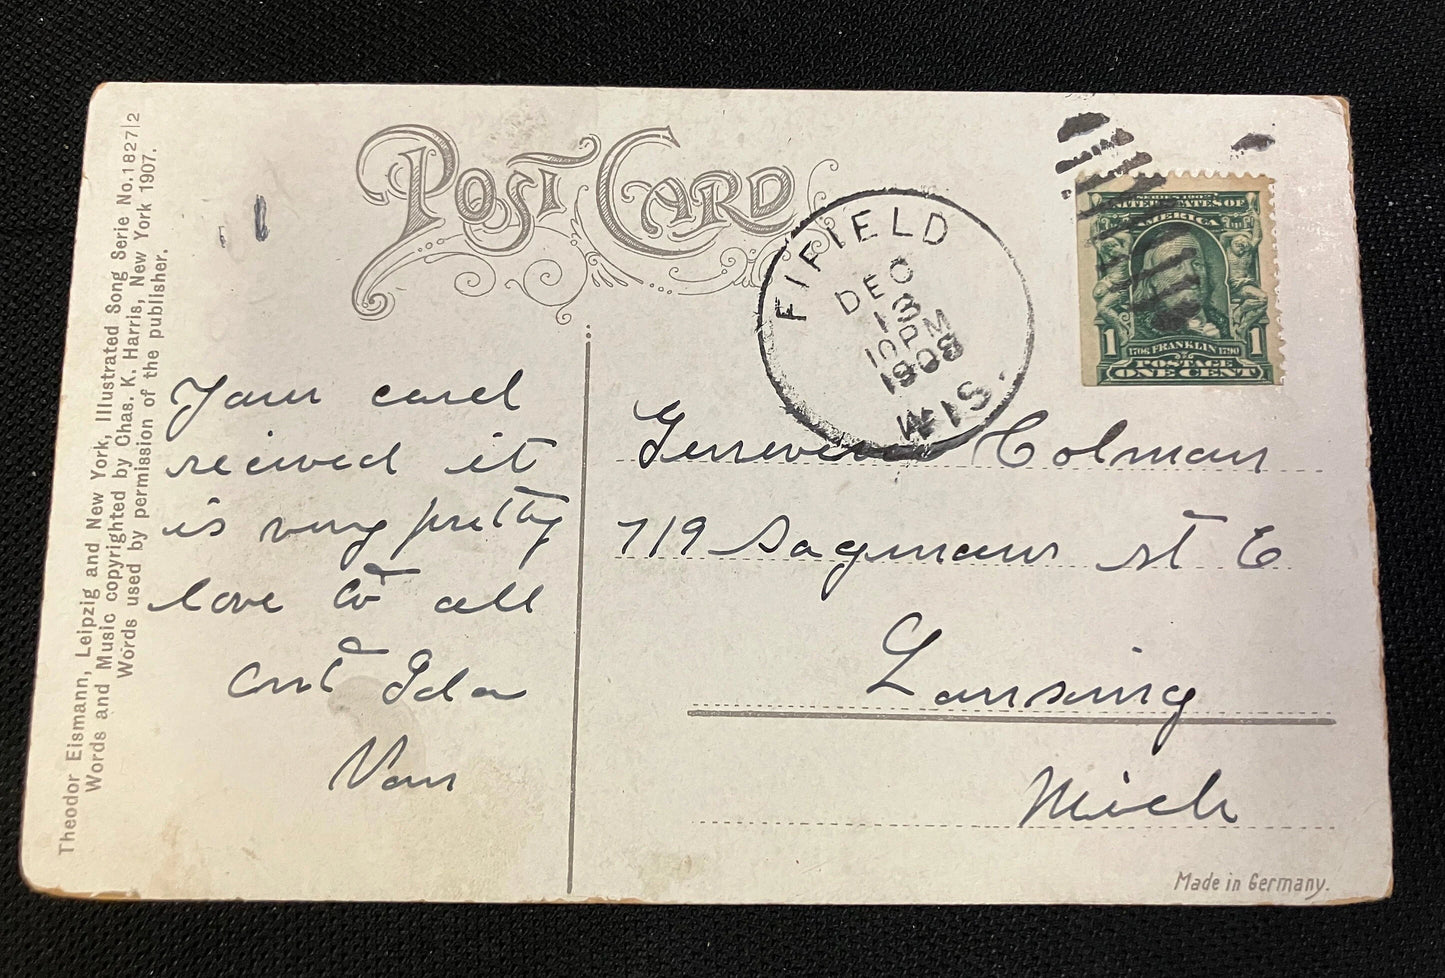 POST CARD
Theodor Eismann, Leipzig and New York, Illustrated Song Serie No. 1827|2
Words and Music copyrighted by Chas. K. Harris, New York 1907.
Words used by permission of the publisher.
FIFIELD
DEC
13
10 PM
1908
WIS.
UNITED STATES OF
AMERICA
1 1
1706 FRANKLIN 1790
POSTAGE
ONE CENT
Your card
recived it
is very pretty
love to all
Ant Ida
Van
Gennevene Colman
719 Sagmaur st E
Lansing
Mich
Made in Germany.